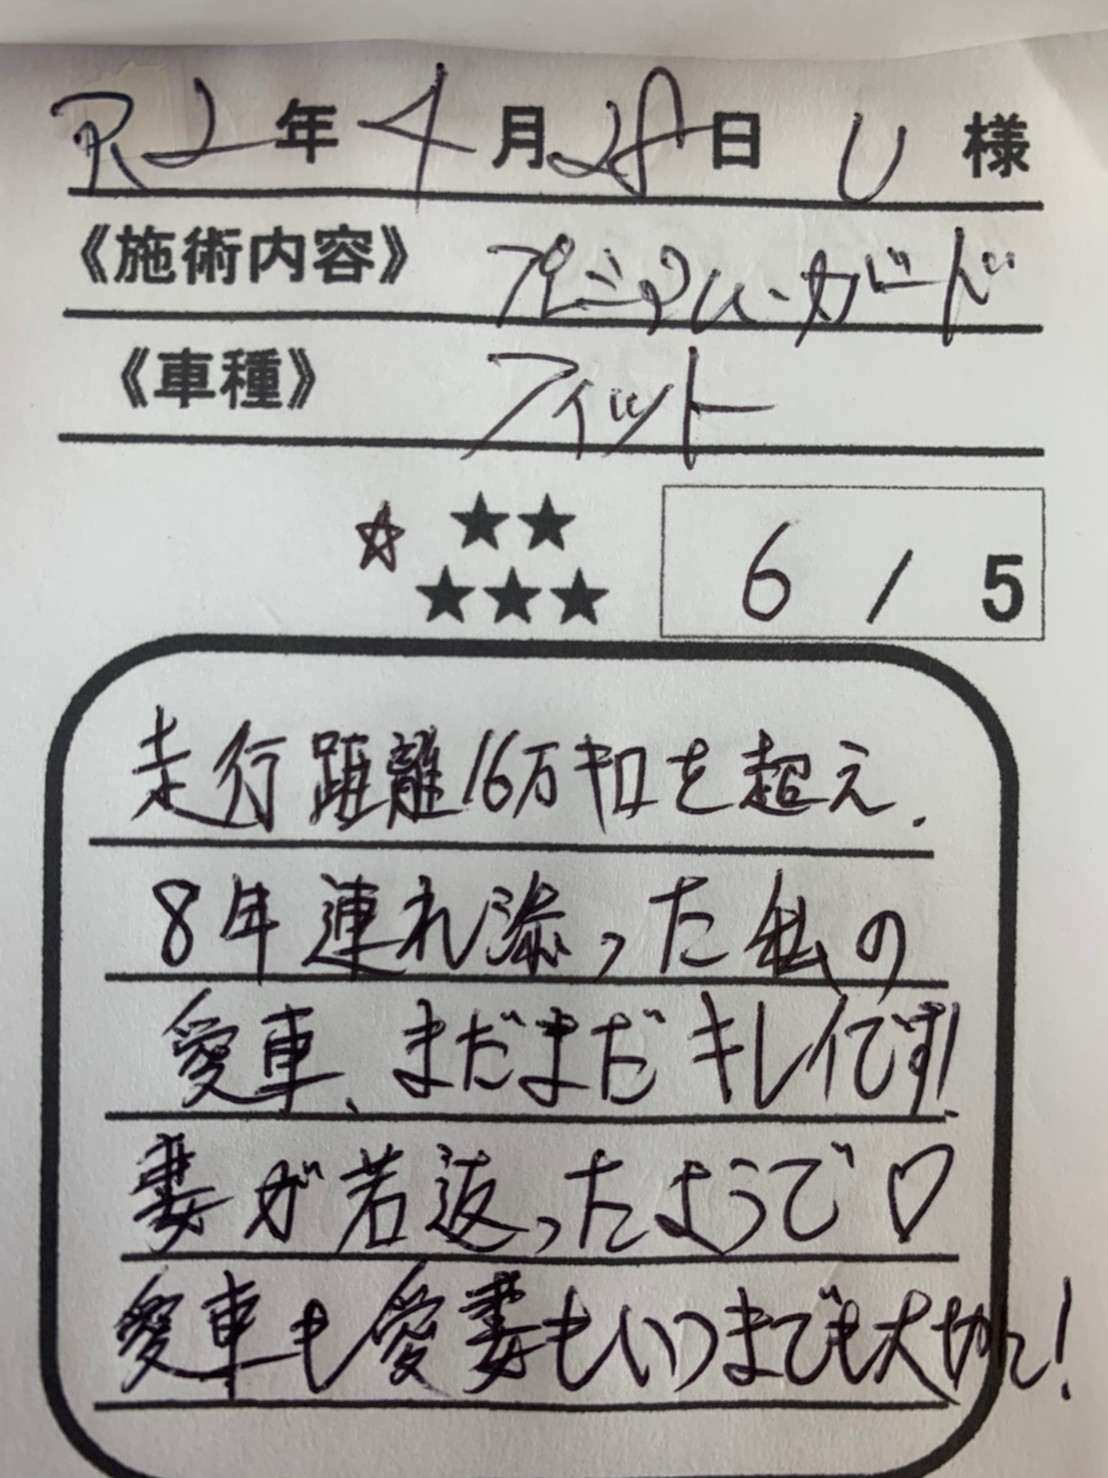 R2年4月28日 U 様
《施術内容》 プレミアム・ガード
《車種》 フィット
☆ ★★
★★★ 6 / 5
走行距離16万キロを超え、
8年連れ添った私の
愛車、まだまだキレイです!
妻が若返ったようで♡
愛車も愛妻もいつまでも大切に!